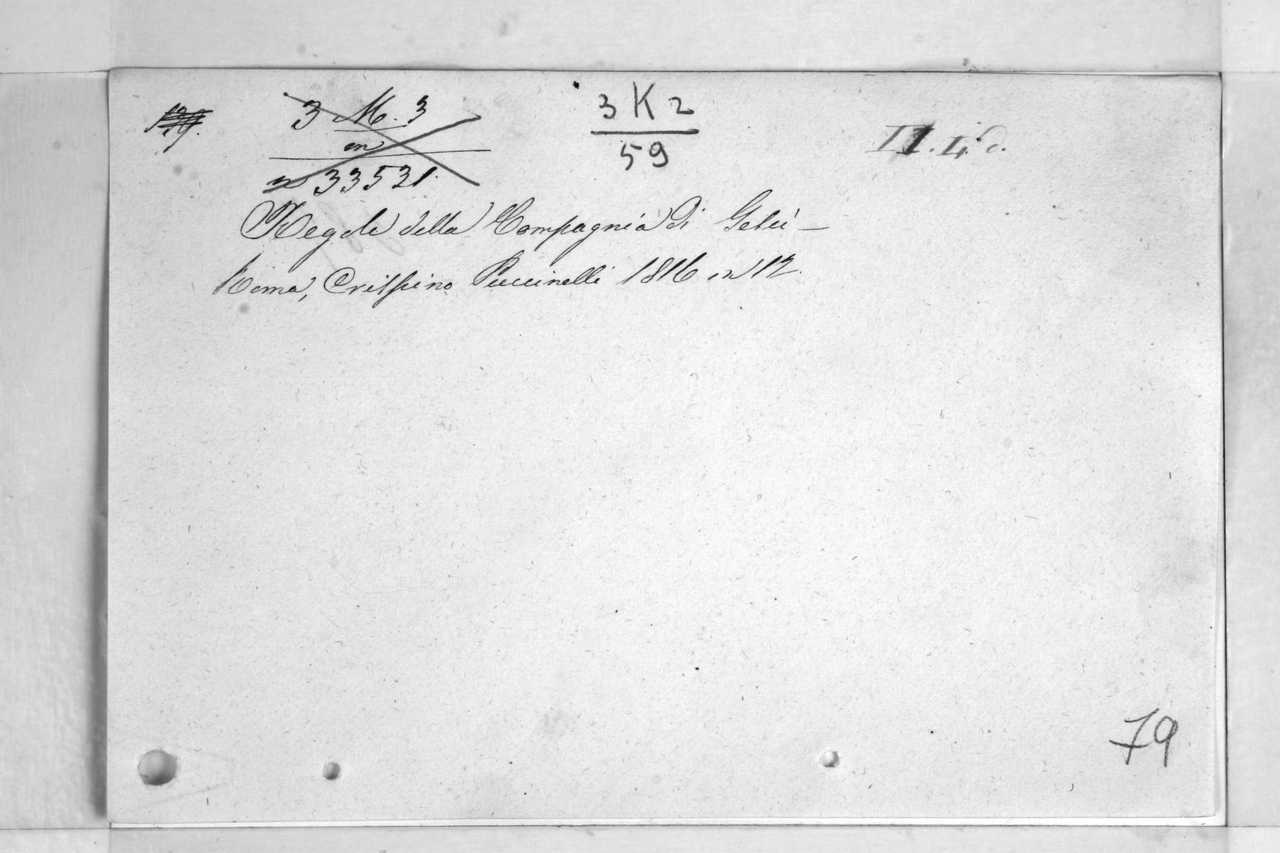 3 M. 3
3 K 2
59
II.4.d.
m
n 33521.
Regole della Compagnia di Gesù —
Roma, Crispino Puccinelli 1816 in 12.
79